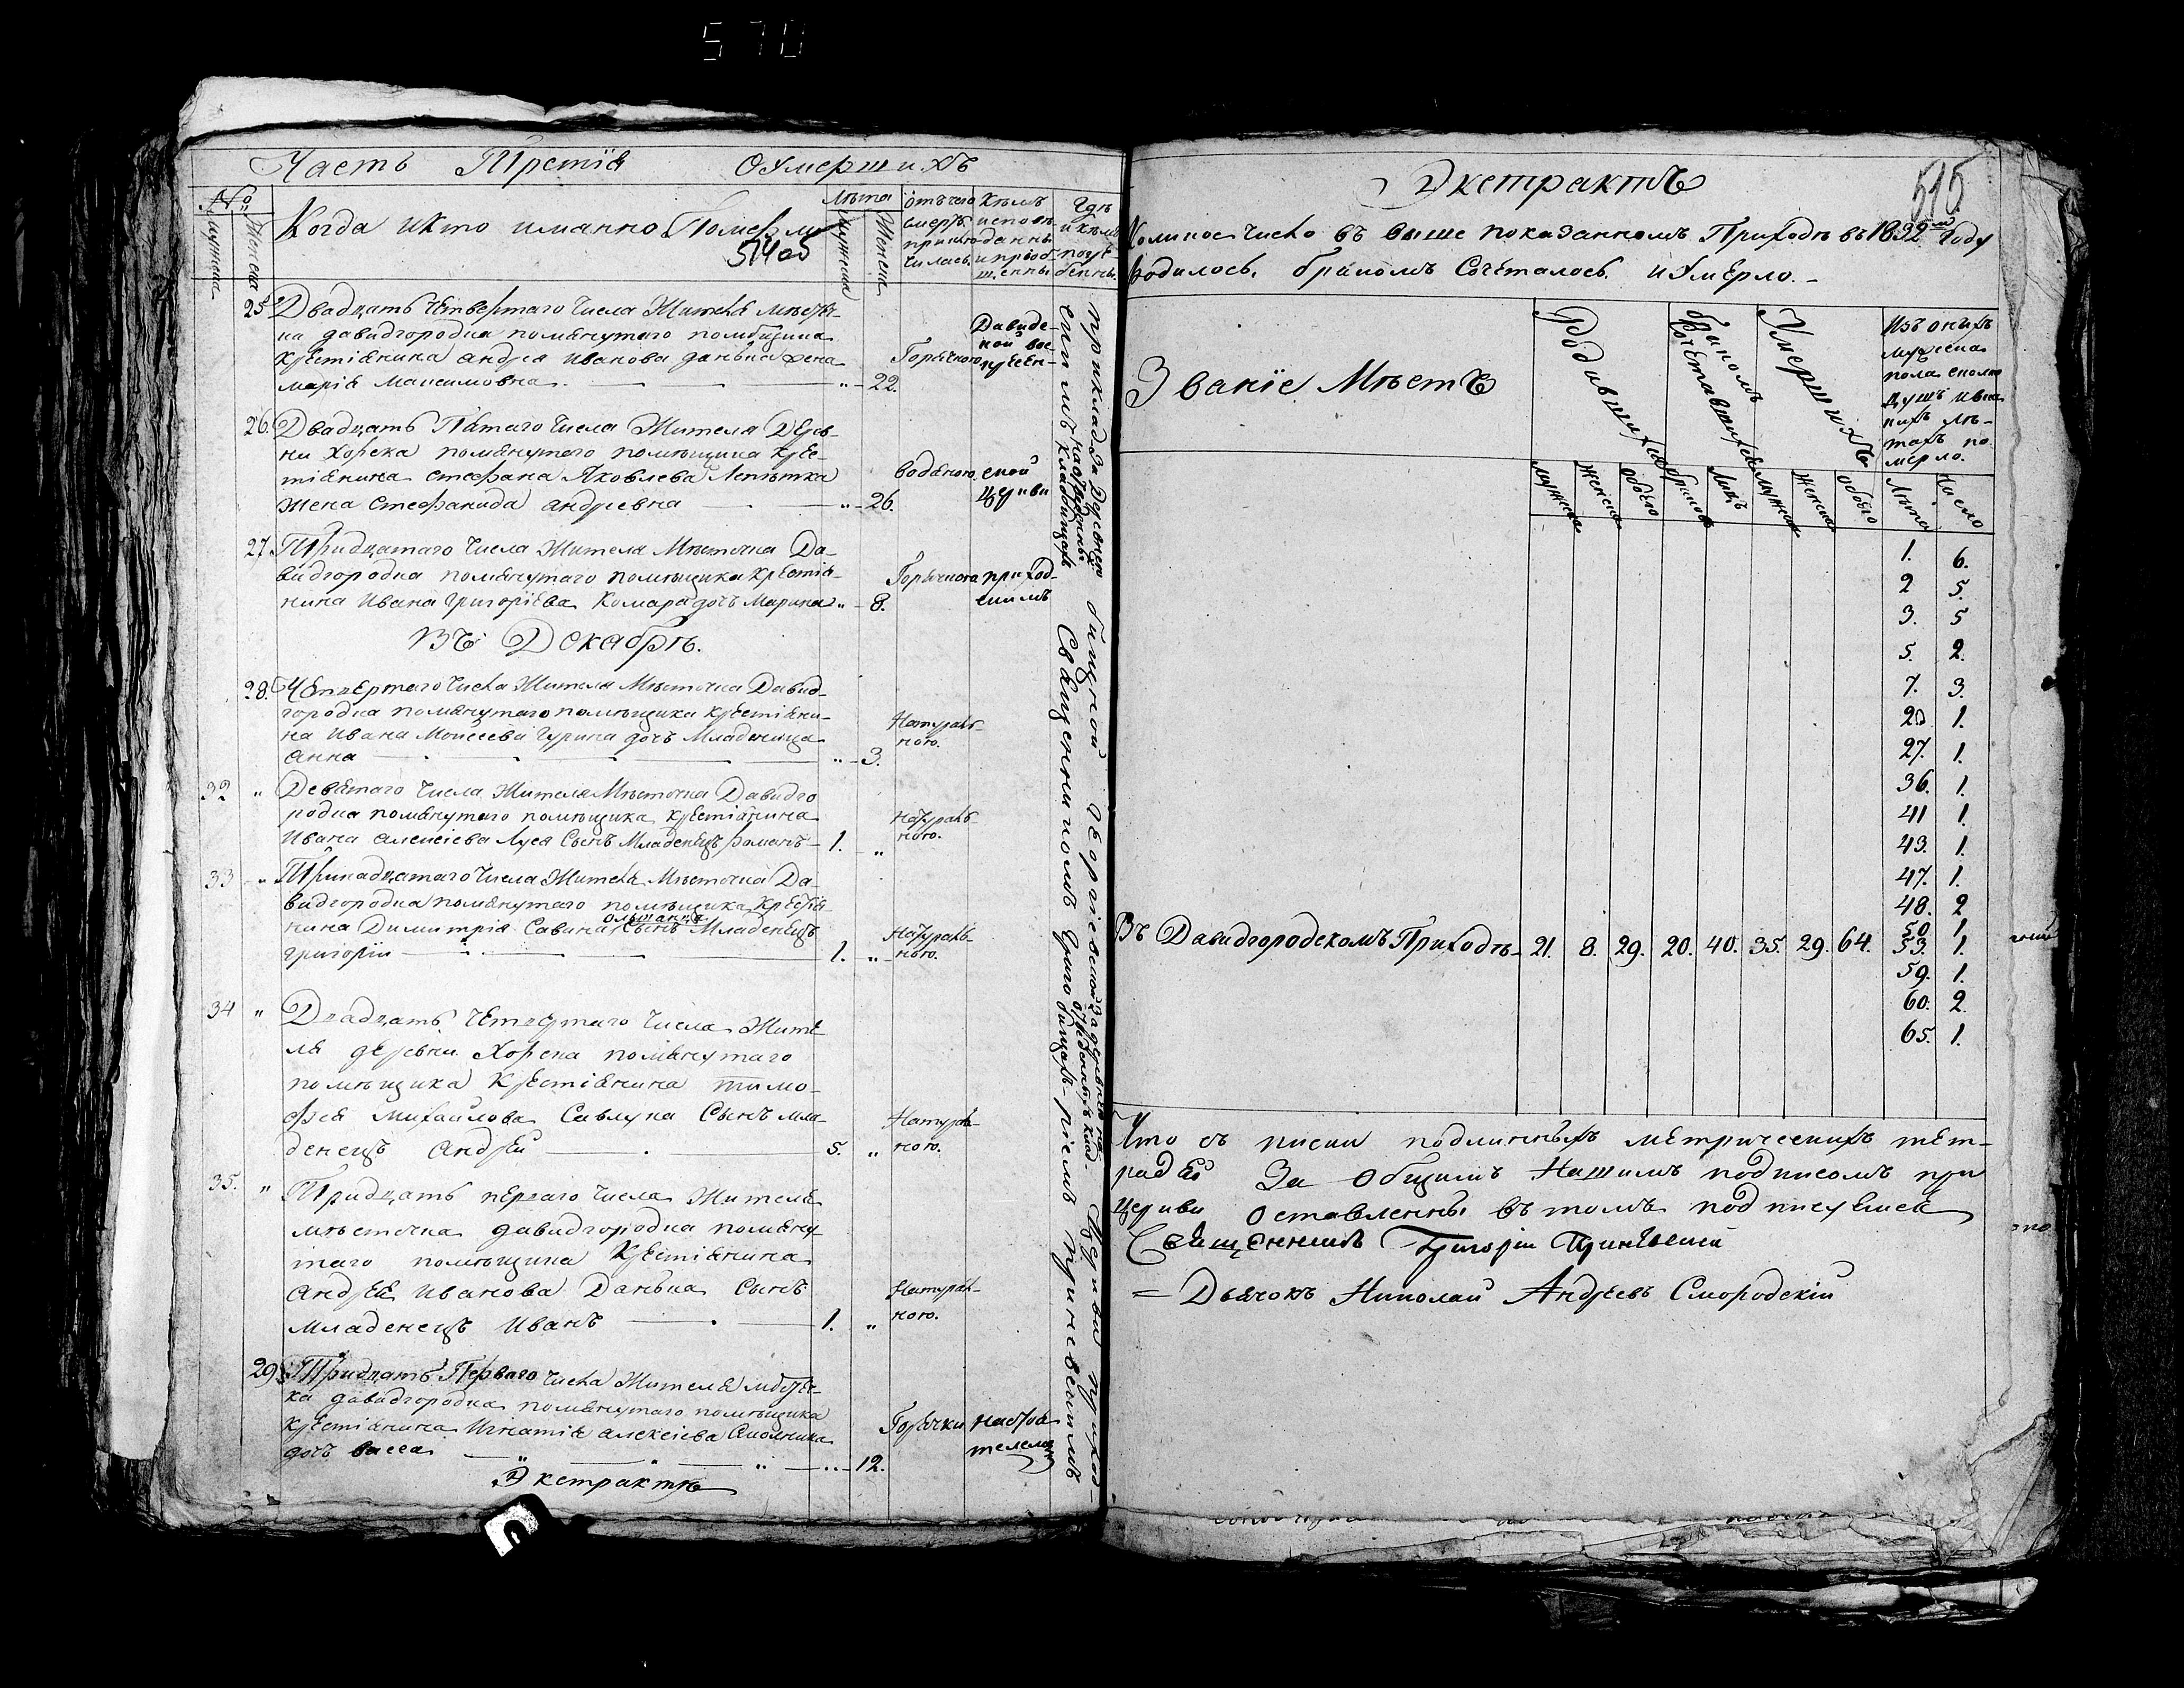 570
Часть Третія О Умершихъ
№
мужеска
женска
Когда и кто именно Померли
514 об
Лѣта
мужеска
женска
отъ чего
смерть
приклю
чилась
Кѣмъ
исповѣ
данны
и прiоб-
щенны
Гдѣ
и кѣмъ
погре
бенны
25 Двадцать Четвертаго Числа Жителя мѣстеч-
ка давидгородка помянутаго помѣщика
Крестіянина андрея Иванова данька жена
марія Максимовна 22. Горячкою
26. Двадцать Пятаго Числа Жителя Дерев-
ни Хорска помянутаго помѣщика кре-
стіянина стефана Яковлева
жена Стефанида андреевна 26. водяною
27. Тридцатаго Числа Жителя Мѣстечка Да-
видгородка помянутаго помѣщика крестія-
нина Ивана Григоріева Комара дочь Марина 8. Горячкою
Давидг-
кой вос-
кресен-
ской
церкви
приход-
скимъ
Въ Декабрѣ.
28. Четвертаго Числа Жителя Мѣстечка Давид-
городка помянутаго помѣщика крестіяни-
на Ивана Моисеева Гурина дочь Младеница
Анна 3. Натураль-
ною.
32 " Девятаго Числа Жителя Мѣстечка Давидго
родка помянутаго помѣщика крестіянина
Ивана алексіева Луся Сынъ Младенецъ романъ 1. " Натураль-
ною.
33 " Тринадцатаго Числа Жителя Мѣстечка Да-
видгородка помянутаго помѣщика Крестія-
нина Димитрія Савина Сынъ Младенецъ
Григорій 1. " Натураль-
ною.
34 " Двадцать Четвертаго Числа Жите
ля деревни Хорска помянутаго
помѣщика Крестіянина тимо-
фея Михайлова Савлука Сынъ мла-
денецъ Андрей 5. " Натураль-
ною.
35. " Тридцать перваго Числа Жителя
мѣстечка давидгородка помяну-
таго помѣщика Крестіянина
Андрея Иванова Данька Сынъ
младенецъ Иванъ 1. " Натураль-
ною.
29 Тридцать Перваго Числа Жителя мѣстеч-
ка давидгородка помянутаго помѣщика
крестіянина Игнатія алексіева Смолника
дочь Васса 12. Горячки
настоя
телемъ
Экстрактъ
на приклад: за деревнею
Священникомъ Григоріемъ
Георгіевской
Церкви приход-
скимъ
кладбищахъ
515
Экстрактъ
Коликое Число въ выше показанномъ Приходѣ въ 1832м Году
Родилось. бракомъ Сочеталось. и Умерло.
Званіе Мѣстъ
Родившихся
бракомъ
Сочетавшихся
Умершихъ
Изъ онихъ
мужеска
пола сколко
душъ и в ка
кихъ лѣ-
тахъ по
мерло.
мужеска
женска
обоего
браковъ
лицъ
мужеска
женска
обоего
Лѣта
Число
1. 6.
2 5.
3. 5
5. 2.
7. 3.
20. 1.
27. 1.
36. 1.
41 1.
43. 1.
47. 1.
48. 2
50 1.
Въ Давидгородскомъ Приходѣ 21. 8. 29. 20. 40. 35. 29. 64. 53. 1.
59. 1.
60. 2.
65. 1.
Что съ писки подлинныхъ метрическихъ тет-
радей За Общимъ Нашимъ подписомъ при
Церкви оставленны въ томъ подписуемся
Священникъ Григорій
Дьячокъ Николай Андреевъ Смородскій